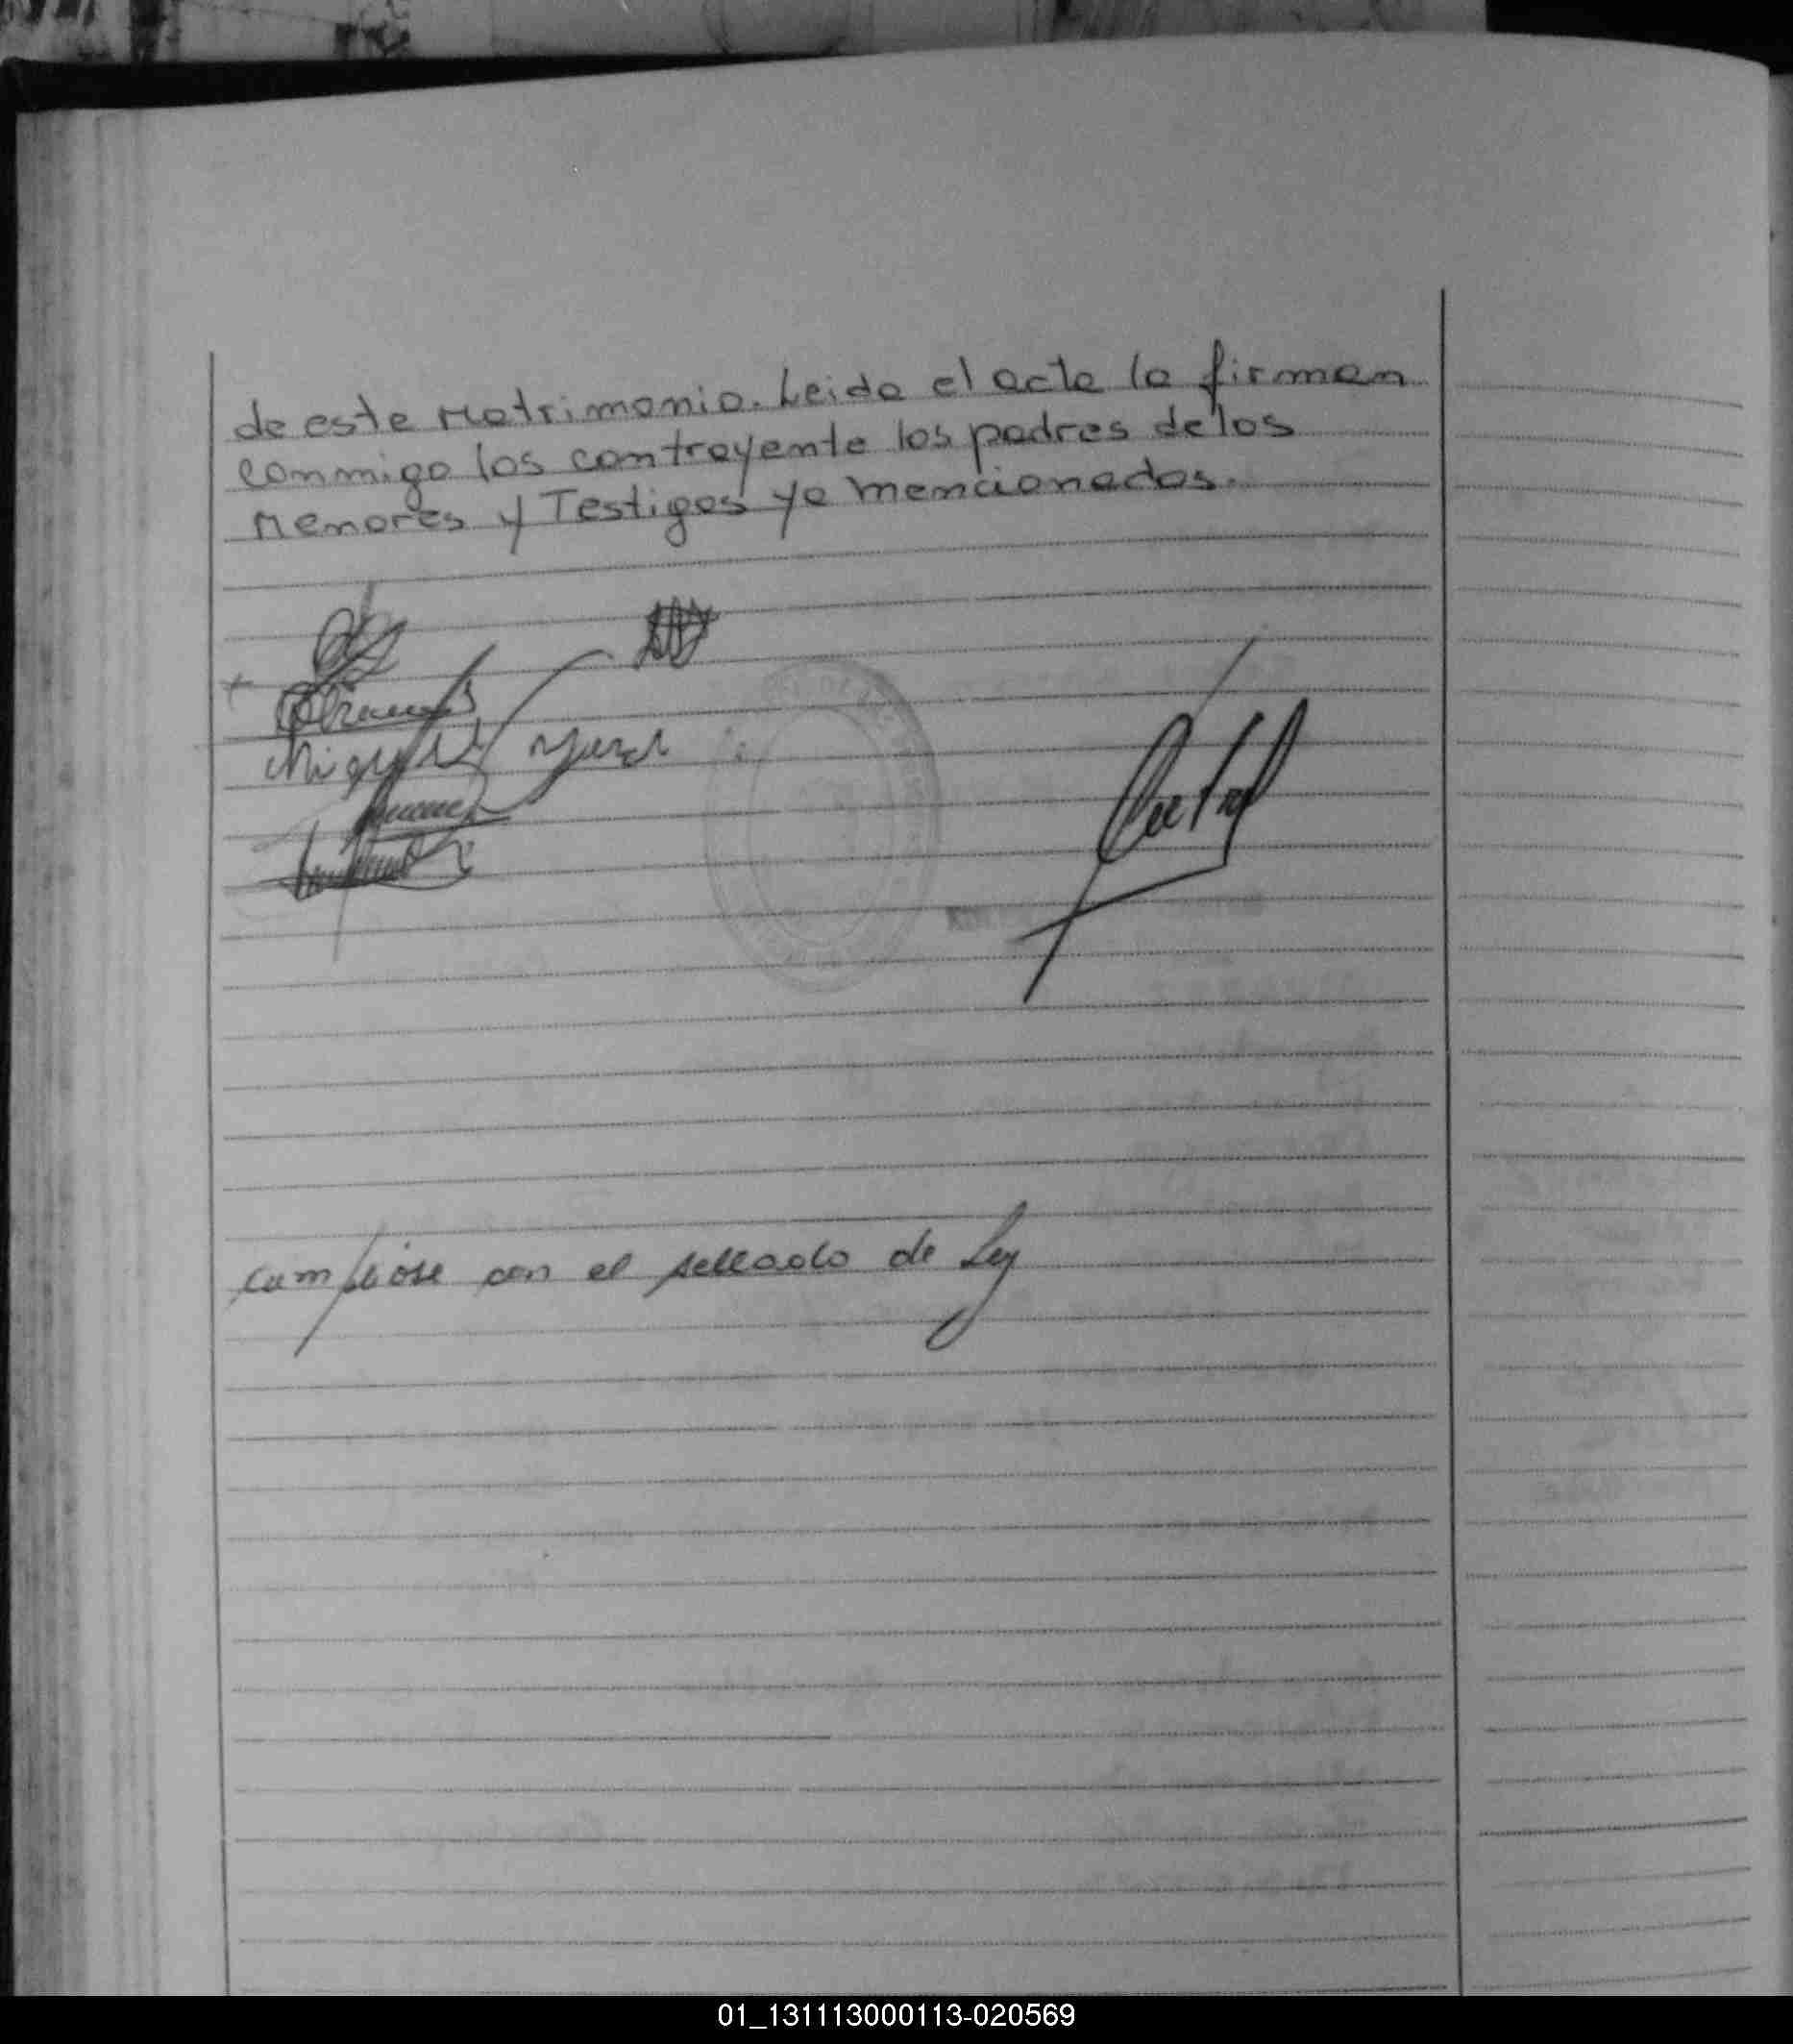 de este Matrimonio. Leida el acta la firman
conmigo los contrayente los padres de los
Menores y Testigos ya mencionados.
Miguel
cumpliose con el sellado de Ley
01_131113000113-020569